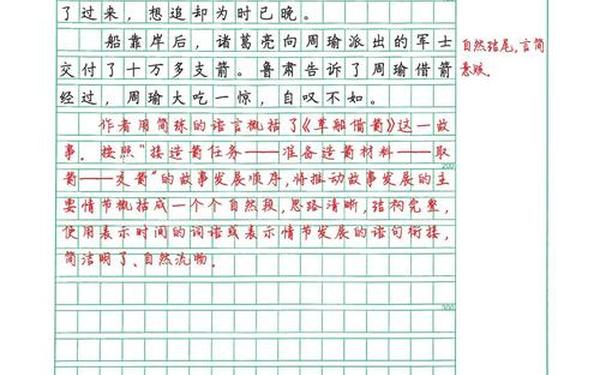 了过来，想追却为时已晚。
船靠岸后，诸葛亮向周瑜派出的军士
交付了十万多支箭。鲁肃告诉了周瑜借箭
经过，周瑜大吃一惊，自叹不如。
自然结尾，言简
意赅。
作者用简练的语言概括了《草船借箭》这一故
事。按照“接造箭任务——准备造箭材料——取
200
箭——交箭”的故事发展顺序，将推动故事发展的主
要情节概括成一个个自然段，思路清晰，结构完整，
使用表示时间的词语或表示情节发展的语句衔接，
简洁明了、自然流畅。
300